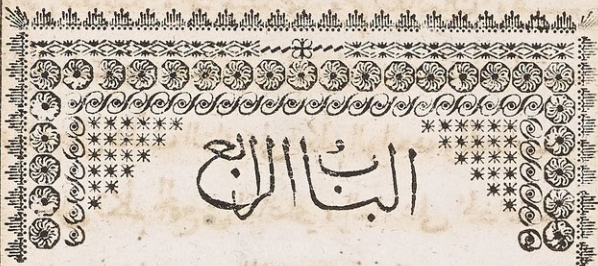 البابُ الرابع